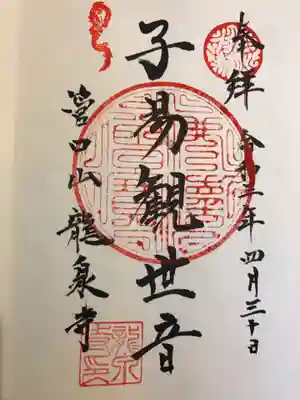 奉拝 令和二年四月三十日
子易観世音
營口山 龍泉寺